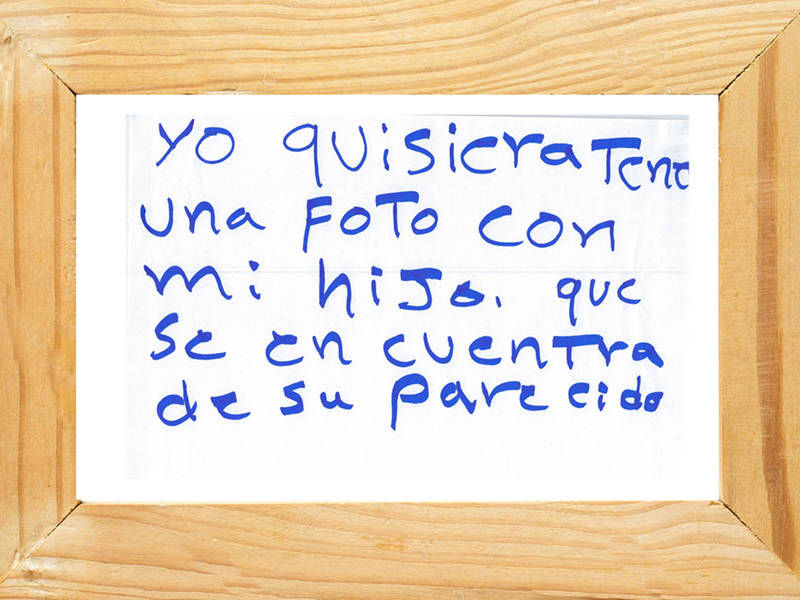 yo quisiera Tene
una FOTO con
mi hiJo. que
se en cuentra
de su Parecido